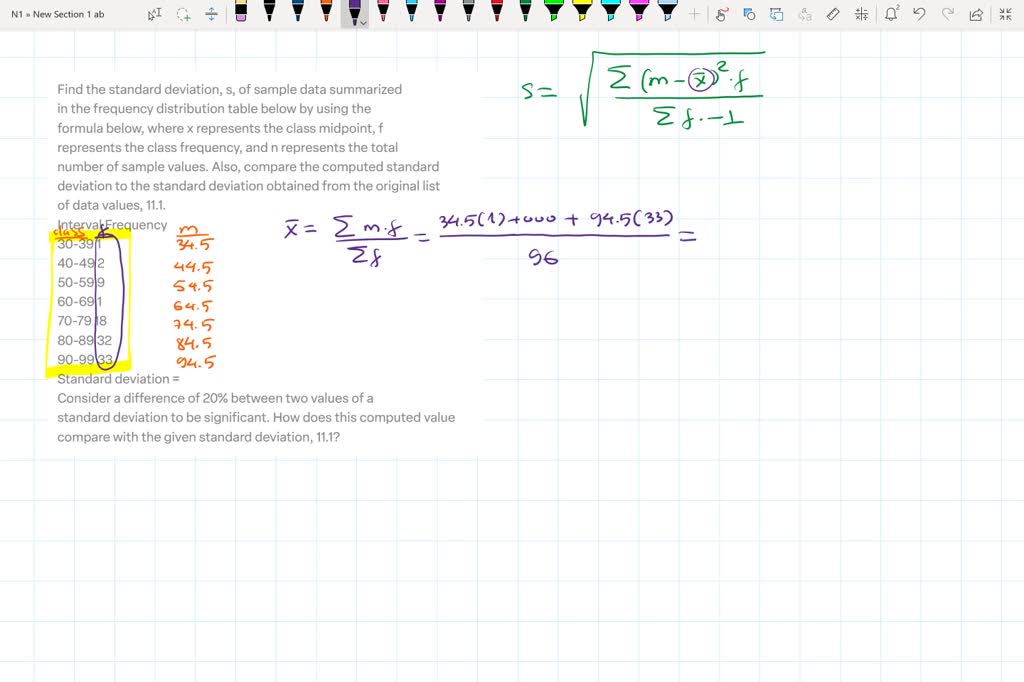 N1 » New Section 1 ab
Find the standard deviation, s, of sample data summarized
in the frequency distribution table below by using the
formula below, where x represents the class midpoint, f
represents the class frequency, and n represents the total
number of sample values. Also, compare the computed standard
deviation to the standard deviation obtained from the original list
of data values, 11.1.
Interval Frequency
class f m
30-39 1 34.5
40-49 2 44.5
50-59 9 54.5
60-69 1 64.5
70-79 18 74.5
80-89 32 84.5
90-99 33 94.5
Standard deviation =
Consider a difference of 20% between two values of a
standard deviation to be significant. How does this computed value
compare with the given standard deviation, 11.1?
s = √ Σ (m - x̄)² · f
Σ f · - 1
x̄ = Σ m.f = 34.5(1)+000 + 94.5(33) =
Σf 96